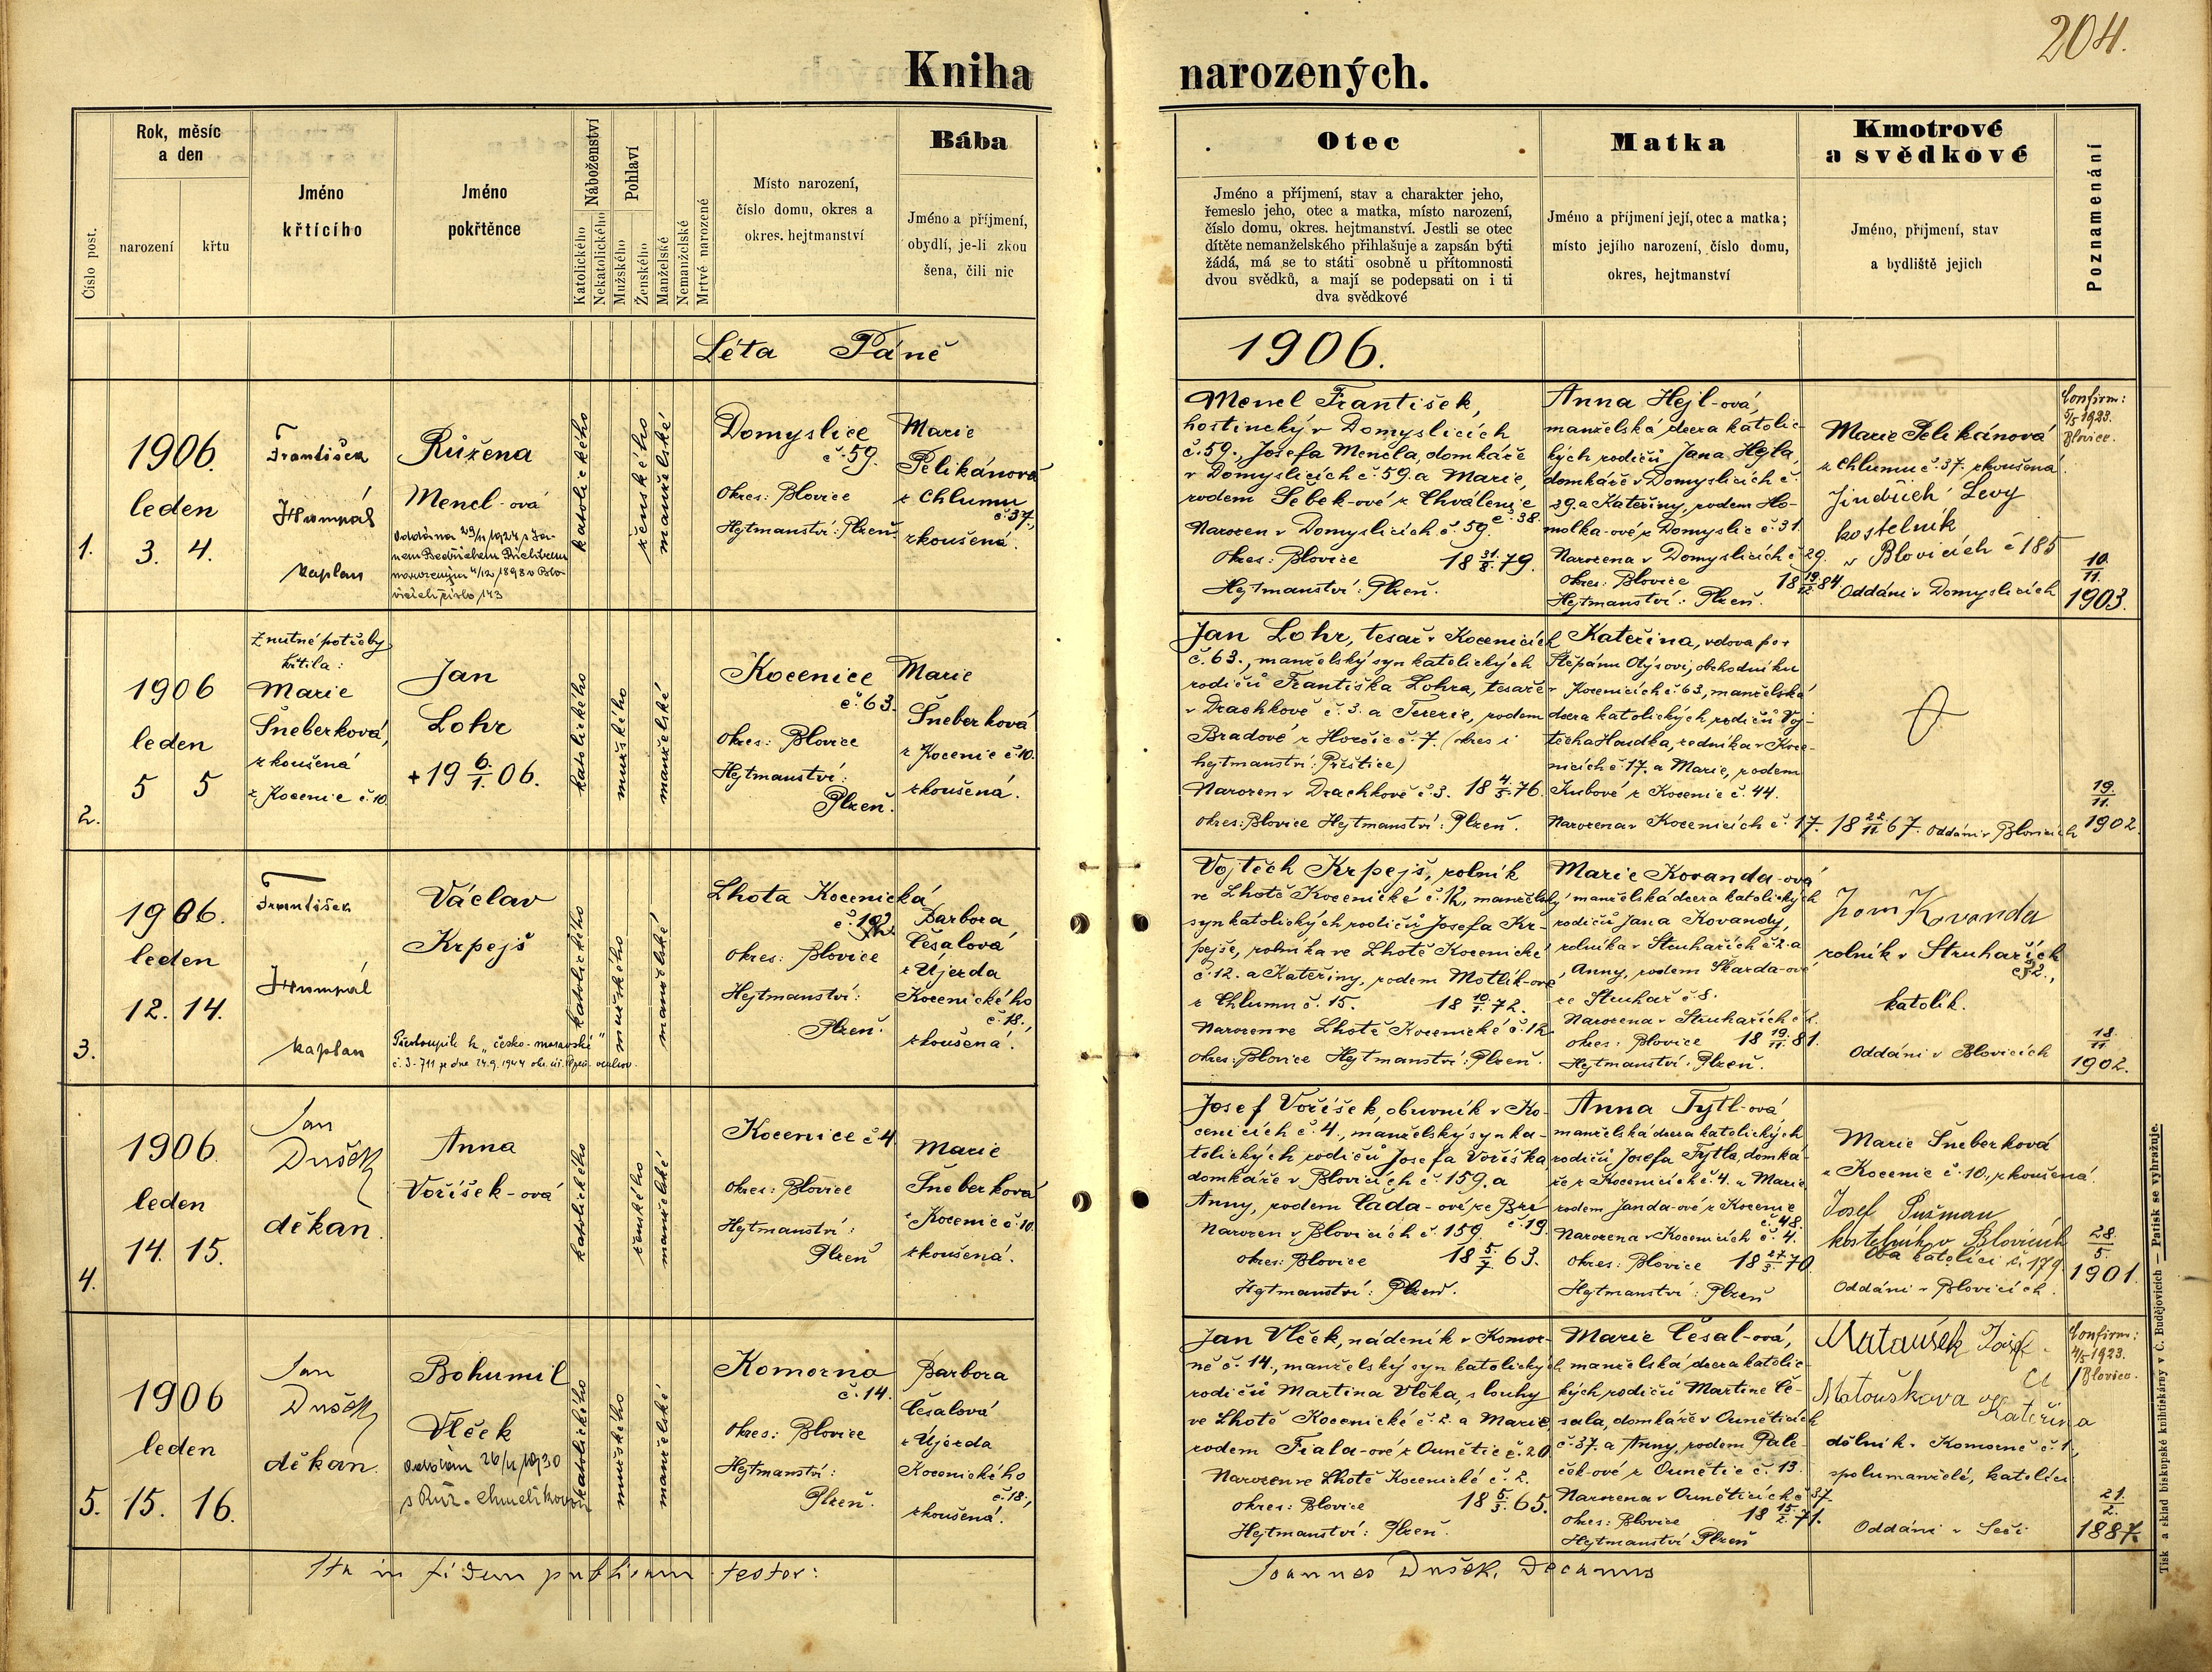 204.
Kniha narozených.
Číslo post.
Rok, měsíc
a den
narození
křtu
Jméno
křtícího
Jméno
pokřtěnce
Náboženství
Katolického
Nekatolického
Pohlaví
Mužského
Ženského
Manželské
Nemanželské
Mrtvě narozené
Místo narození,
číslo domu, okres a
okres. hejtmanství
Bába
Jméno a příjmení,
obydlí, je-li zkou
šena, čili nic
Otec
Jméno a příjmení, stav a charakter jeho,
řemeslo jeho, otec a matka, místo narození,
číslo domu, okres. hejtmanství. Jestli se otec
dítěte nemanželského přihlašuje a zapsán býti
žádá, má se to státi osobně u přítomnosti
dvou svědků, a mají se podepsati on i ti
dva svědkové
Matka
Jméno a příjmení její, otec a matka;
místo jejího narození, číslo domu,
okres, hejtmanství
Kmotrové
a svědkové
Jméno, příjmení, stav
a bydliště jejich
Poznamenání
Léta Páně
1906.
1.
1906.
leden
3. 4.
František
Humpál
kaplan
Růžena
Mencl-ová
katolického
ženského
manželské
Domyslice
č. 59.
Okres: Blovice
Hejtmanství: Plzeň.
Marie
Pelikánová
z Chlumu
č. 37.,
zkoušená.
Mencl František,
hostinský v Domyslicích
č. 59. Josefa Mencla, domkáře
v Domyslicích č. 59. a Marie,
rodem Šebek-ové z Chválenic
č. 38.
Narozen v Domyslicích č. 59.
Okres: Blovice 18 31/8. 79.
Hejtmanství: Plzeň.
Anna Hejl-ová,
manželská dcera katolic-
kých rodičů Jana Hejla,
domkáře v Domyslicích č.
29. a Kateřiny, rodem Ho-
molka-ové z Domyslic č. 31.
Narozena v Domyslicích č. 29.
Okres: Blovice 18 19/12. 84.
Hejtmanství: Plzeň.
Marie Pelikánová
z Chlumu č. 37. zkoušená.
Jindřich Levy
kostelník
v Blovicích č 185
Oddáni v Domyslicích
Confirm:
5/5 1923.
Blovice.
10./11.
1903.
2.
1906
leden
5 5
Z nutné potřeby
křtila:
Marie
Šneberková,
zkoušená
z Kocenic č. 10.
Jan
Lohr
+ 19 6./1. 06.
katolického
mužského
manželské
Kocenice
č. 63.
Okres: Blovice
Hejtmanství:
Plzeň.
Marie
Šneberková
z Kocenic č. 10.
zkoušená.
Jan Lohr, tesař v Kocenicích
č. 63., manželský syn katolických
rodičů Františka Lohra, tesaře
v Drachkově č. 3. a Terezie, rodem
Bradové z Horšic č. 7. (okres i
hejtmanství: Přeštice)
Narozen v Drachkově č. 3. 18 4/5. 76.
Okres: Blovice Hejtmanství: Plzeň.
Kateřina, vdova po
Štěpánu Otýsovi, obchodníku
v Kocenicích č. 63, manželská
dcera katolických rodičů Voj-
těcha Houdka, rodníka v Koce-
nicích č. 17. a Marie, rodem
Kubové z Kocenic č. 44.
Narozena v Kocenicích č. 17. 18 22/11. 67. Oddáni v Blovicích
19./11.
1902.
3.
1906.
leden
12. 14.
František
Humpál
kaplan
Václav
Krpejš
katolického
mužského
manželské
Lhota Kocenická
okres: Blovice
Hejtmanství:
Plzeň.
Barbora
Česalová
z Újezda
Kocenického
č. 18.,
zkoušená.
Vojtěch Krpejš, rolník
ve Lhotě Kocenické č. 12, manželský
syn katolických rodičů Josefa Kr-
pejše, rolníka ve Lhotě Kocenické
č. 12. a Kateřiny, rodem Motlík-ové
z Chlumu č. 15. 18 10/1. 72.
Narozen ve Lhotě Kocenické č. 12
okres: Blovice Hejtmanství: Plzeň.
Marie Kovanda-ová
manželská dcera katolických
rodičů Jana Kovandy,
rolníka v Struhařích č. 2. a
Anny, rodem Škarda-ové
ze Struhař č 8.
Narozena v Struhařích č 2.
okres: Blovice 18 19/11. 81.
Hejtmanství: Plzeň.
Kovanda
rolník v Struhařích
č. 2.,
katolík.
Oddáni v Blovicích
18/11
1902.
4.
1906.
leden
14. 15.
Jan
Dušek
děkan.
Anna
Voříšek-ová
katolického
ženského
manželské
Kocenice č 4.
okres: Blovice
Hejtmanství:
Plzeň
Marie
Šneberková
z Kocenic č. 10.
zkoušená.
Josef Voříšek, obuvník v Ko-
cenicích č. 4., manželský syn ka-
tolických rodičů Josefa Voříška,
domkáře v Blovicích č. 159. a
Anny, rodem Čada-ové
č. 19.
Narozen v Blovicích č. 159.
okres: Blovice 18 5./7. 63.
Hejtmanství: Plzeň.
Anna Tytl-ová,
manželská dcera katolických
rodičů Josefa Tytla, domká-
ře z Kocenicích č. 4. a Marie
rodem Janda-ové z Kocenic
č. 48.
Narozena v Kocenicích č. 4.
okres: Blovice 18 27./3. 70.
Hejtmanství: Plzeň
Marie Šneberková
z Kocenic č. 10., zkoušená.
Josef
kostelník v Blovicích
Oba katolíci č. 179.
Oddáni v Blovicích.
28./5.
1901.
5.
1906
leden
15. 16.
Jan
Dušek
děkan.
Bohumil
Vlček
katolického
mužského
manželské
Komorno
č. 14.
Okres: Blovice
Hejtmanství:
Plzeň.
Barbora
Česalová
z Újezda
Kocenického
č. 18.,
zkoušená.
Jan Vlček, nádeník v Komor-
ně č. 14., manželský syn katolických
rodičů Martina Vlčka, slouhy
ve Lhotě Kocenické č. 2. a Marie,
rodem Fiala-ové z Ounětic č. 20
Narozen ve Lhotě Kocenické č. 2.
okres: Blovice 18 5/3. 65.
Hejtmanství: Plzeň.
Marie Česal-ová,
manželská dcera katolic-
kých rodičů Martina Če-
sala, domkáře v Ouněticích
č. 37. a Anny, rodem Pale-
ček-ové z Ounětic č. 13.
Narozena v Ouněticích č 37.
okres: Blovice 18 15/2. 71.
Hejtmanství Plzeň
Mataušek Josef
Matouškova
Kateřina
dělník v Komorně č. 1.,
spolumanželé, katolíci
Oddáni v Seči
Confirm:
4/5 1923.
Blovice.
21./2.
1887.
Ita in fidem publicam testor:
Joannes Dušek, Decanus
Tisk a sklad biskupské knihtiskárny v Č. Budějovicích — Patisk se vyhražuje.